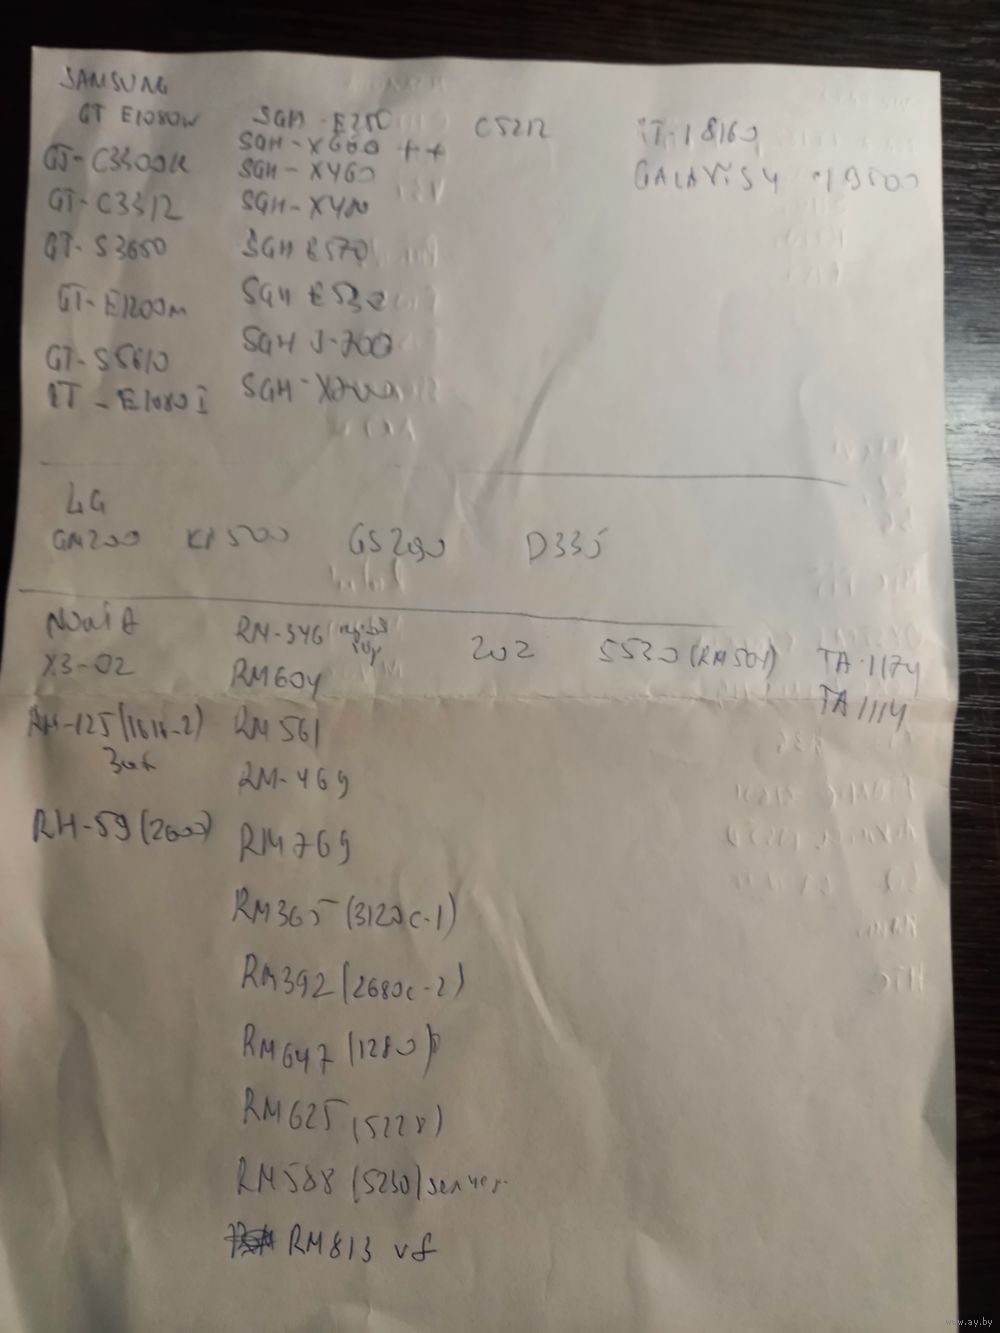 SAMSUNG
GT E1080W SGH-E250 C5212 GT-I8160
SGH-X600 ++
GT-C3300K SGH-X460 GALAXY S4 I9500
GT-C3312 SGH-X410
GT-S3650 SGH E570
GT-E1200M SGH E530
GT-S5610 SGH J-700
GT-E1080I SGH-
LG
GM200 KP500 GS290 D335
NOKIA RM-346 202 5530 (RM504) TA-1174
X3-02 RM604 TA 1114
RH-125 (1616-2) RM 561
RM-469
RH-59 (2600) RM 769
RM365 (3120c-1)
RM392 (2680c-2)
RM647 (1280)
RM625 (5228)
RM588 (5230)
RM813 vf
www.ay.by